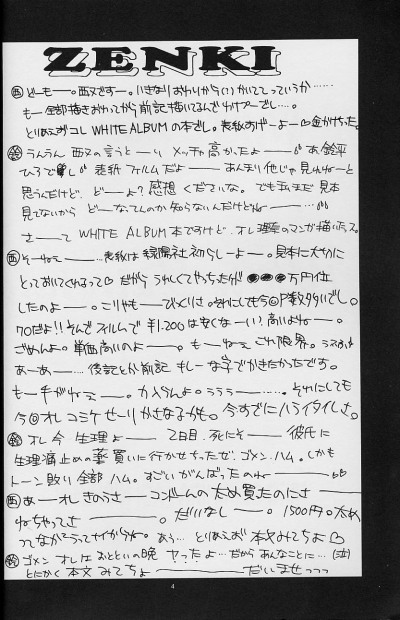 ZENKI
西 どーもー。西又ですー。いきなりおわりから(?)かいてっていうか……
もー全部描きおわってから前記描いてるんでわけプーでし…。
とりあえずコレ WHITE ALBUMの本でし。表紙あげーよー♡金かけちった。
鈴 うんうん 西又の言うとーり メッチャ高かったよー 。あ 鈴平
ひろでし 表紙 フィルムだよー あんまり他じゃ見れねーと
思うんだけど、どーよ?感想 くださいな。でも私まだ見本
見てないから どーなってんのか知らないんだけどねー …。
さーて WHITE ALBUM本ですけど、オレ 理奈のマンガ描いてマス。
西 そーねェー…表紙は緑陽社初らしーよー。見本に大切に
とっておいてくれるって♡ だから うれしくてやっちったが ●●●万円位
したのよー。こりゃもーびっくりさ。それにしても今回P数多いでし。
70だよ!!そんで フィルムで ¥1.200は安くなーい?高いよねー。
ごめんよ。単価高いのよー。もーねェ これ限界。
あーあー…。後記とか前記 もしーな字でかきたかったです。
もー手がねェー。力入らんよ。うううー……。それにしても
今回オレ コミケせーりかさなるかも。今すでにハライタイしさ。
鈴 オレ 今 生理よー 2日目、死にそー 彼氏に
生理痛止めの薬 買いに行かせちったぜ、ゴメン、ハム。しかも
トーン貼り 全部 ハム。すごいがんばったのねー
西 あーオレ きのうさー コンドームの太め買たのにさー
ねちゃってさー 。だいなしー。1500円。太め
ってなかなかうってナイからねー。あぅ… とりあえお 本文みてちょ♡
鈴 ゴメン オレはおとといの晩 ヤったよ…だからあんなことに…(泣)
とにかく 本文 みてちょ だいませっっっ
4